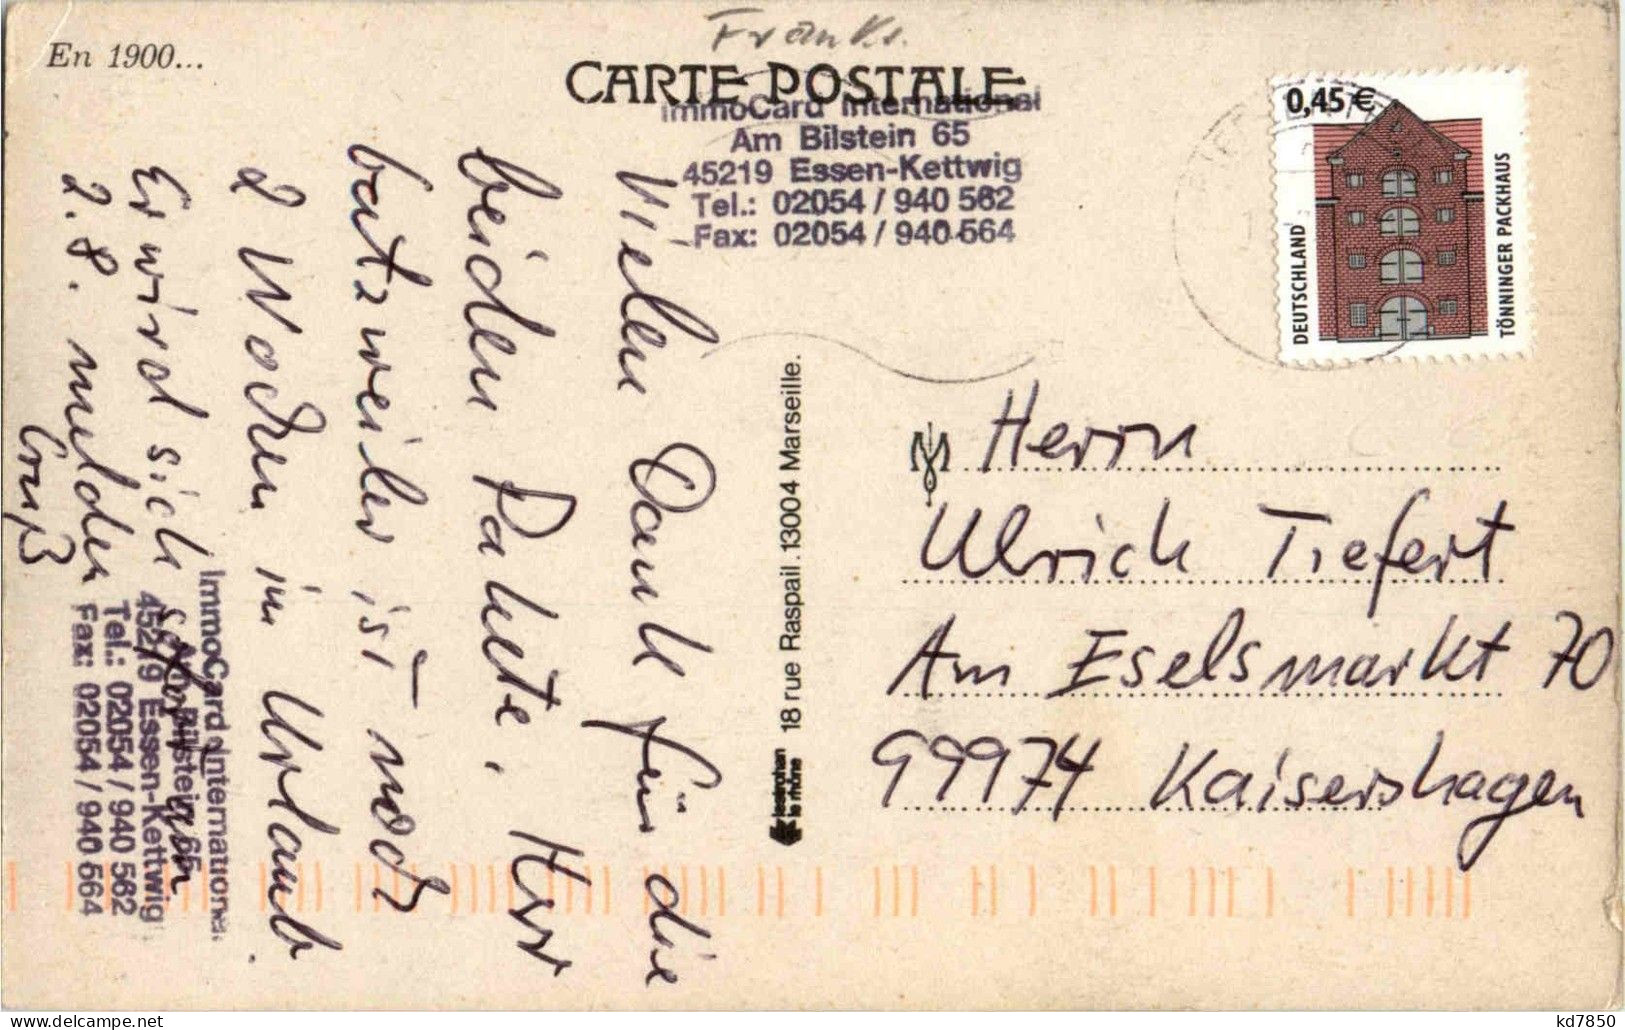 En 1900...
Franks.
CARTE POSTALE
ImmoCard International
Am Bilstein 65
45219 Essen-Kettwig
Tel.: 02054 / 940 562
Fax: 02054 / 940 564
0,45 €
DEUTSCHLAND
TÖNNINGER PACKHAUS
Vielen Dank für die
beiden Pakete, Herr
batzweiler ist noch
2 Wochen in Urlaub.
Er wird sich sofort am
2.8. melden
Gruß
ImmoCard International
Am Bilstein 65
45219 Essen-Kettwig
Tel.: 02054 / 940 562
Fax: 02054 / 940 564
18 rue Raspail . 13004 Marseille.
le rhône
Herrn
Ulrich Tiefert
Am Eselsmarkt 70
99974 Kaisershagen
kd7850